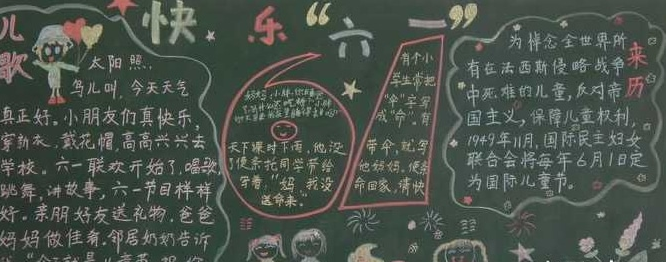 快乐“六一”
儿歌
太阳照,
鸟儿叫,今天天气
真正好。小朋友们真快乐,
穿新衣、戴花帽,高高兴兴去
学校。六一联欢开始了,唱歌,
跳舞,讲故事,六一节目样样
好。亲朋好友送礼物,爸爸
妈妈做佳肴,邻居奶奶告诉
天下课时下雨,他没
了便条托同学带给
“妈,我没
送命来。”
有个小
学生常把
“伞”字写
成“命”,有
带伞,就写
他妈妈。便条
命回家,请快
来历
为悼念全世界所
有在法西斯侵略战争
中死难的儿童,反对帝
国主义,保障儿童权利,
1949年11月,国际民主妇女
联合会将每年6月1日定
为国际儿童节。